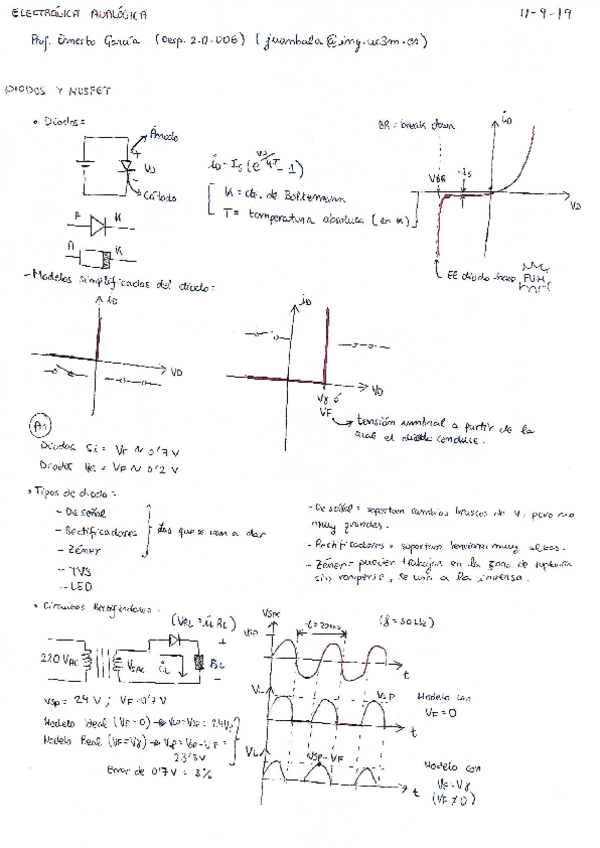 ELECTRÓNICA ANALÓGICA
11-9-19
Prof. Ernesto García (Desp. 2.0.D06) (juanbala@ing.uc3m.es)
DIODOS Y MOSFET
• Diodos:
Ánodo
+
VD
-
Cátodo
A K
A K
K = cte. de Boltzmann
T = temperatura absoluta (en K)
BR = break down
iD
VBR
-Is
VD
El diodo hace PUM
- Modelos simplificados del diodo:
iD
VD
iD
VD
Vγ ó
VF
tensión umbral a partir de la
cual el diodo conduce.
Diodos Si = VF ~ 0'7 V
VF ~ 0'2 V
• Tipos de diodo:
- De señal
- Rectificadores
- Zéner
Los que se van a dar
- TVS
- LED
- De señal = soportan cambios bruscos de V, pero no
muy grandes.
- Rectificadores = soportan tensiones muy altas.
- Zéner = pueden trabajar en la zona de ruptura
sin romperse, se usan a la inversa.
• Circuitos Rectificadores:
(VRL = iL RL)
220 VAC
VSAC
iL
RL
+
-
VSP = 24 V ; VF = 0'7V
Modelo Ideal (VF=0)
Modelo Real (VF=Vγ) → VLP = VSP - VF =
23'3V
Error de 0'7 V = 3%
VSAC
VSP
t = 20ms
(f = 50Hz)
t
VL
VSP
t
Modelo con
VF = 0
VL
VSP - VF
t
Modelo con
VF = Vγ
(VF ≠ 0)